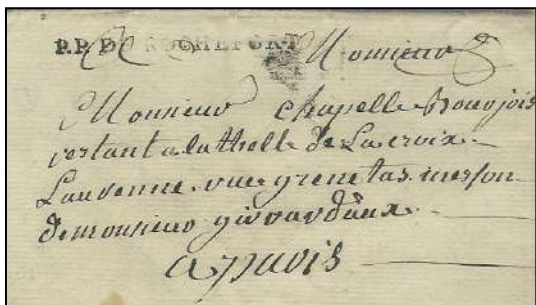 P.P.D ROCHEFORT Monsieur
Monsieur chapelle Bourjois
restant a lathelle de Lacroix
Laurenne rue grenetas merson
de monsieur givrardeux
a paris